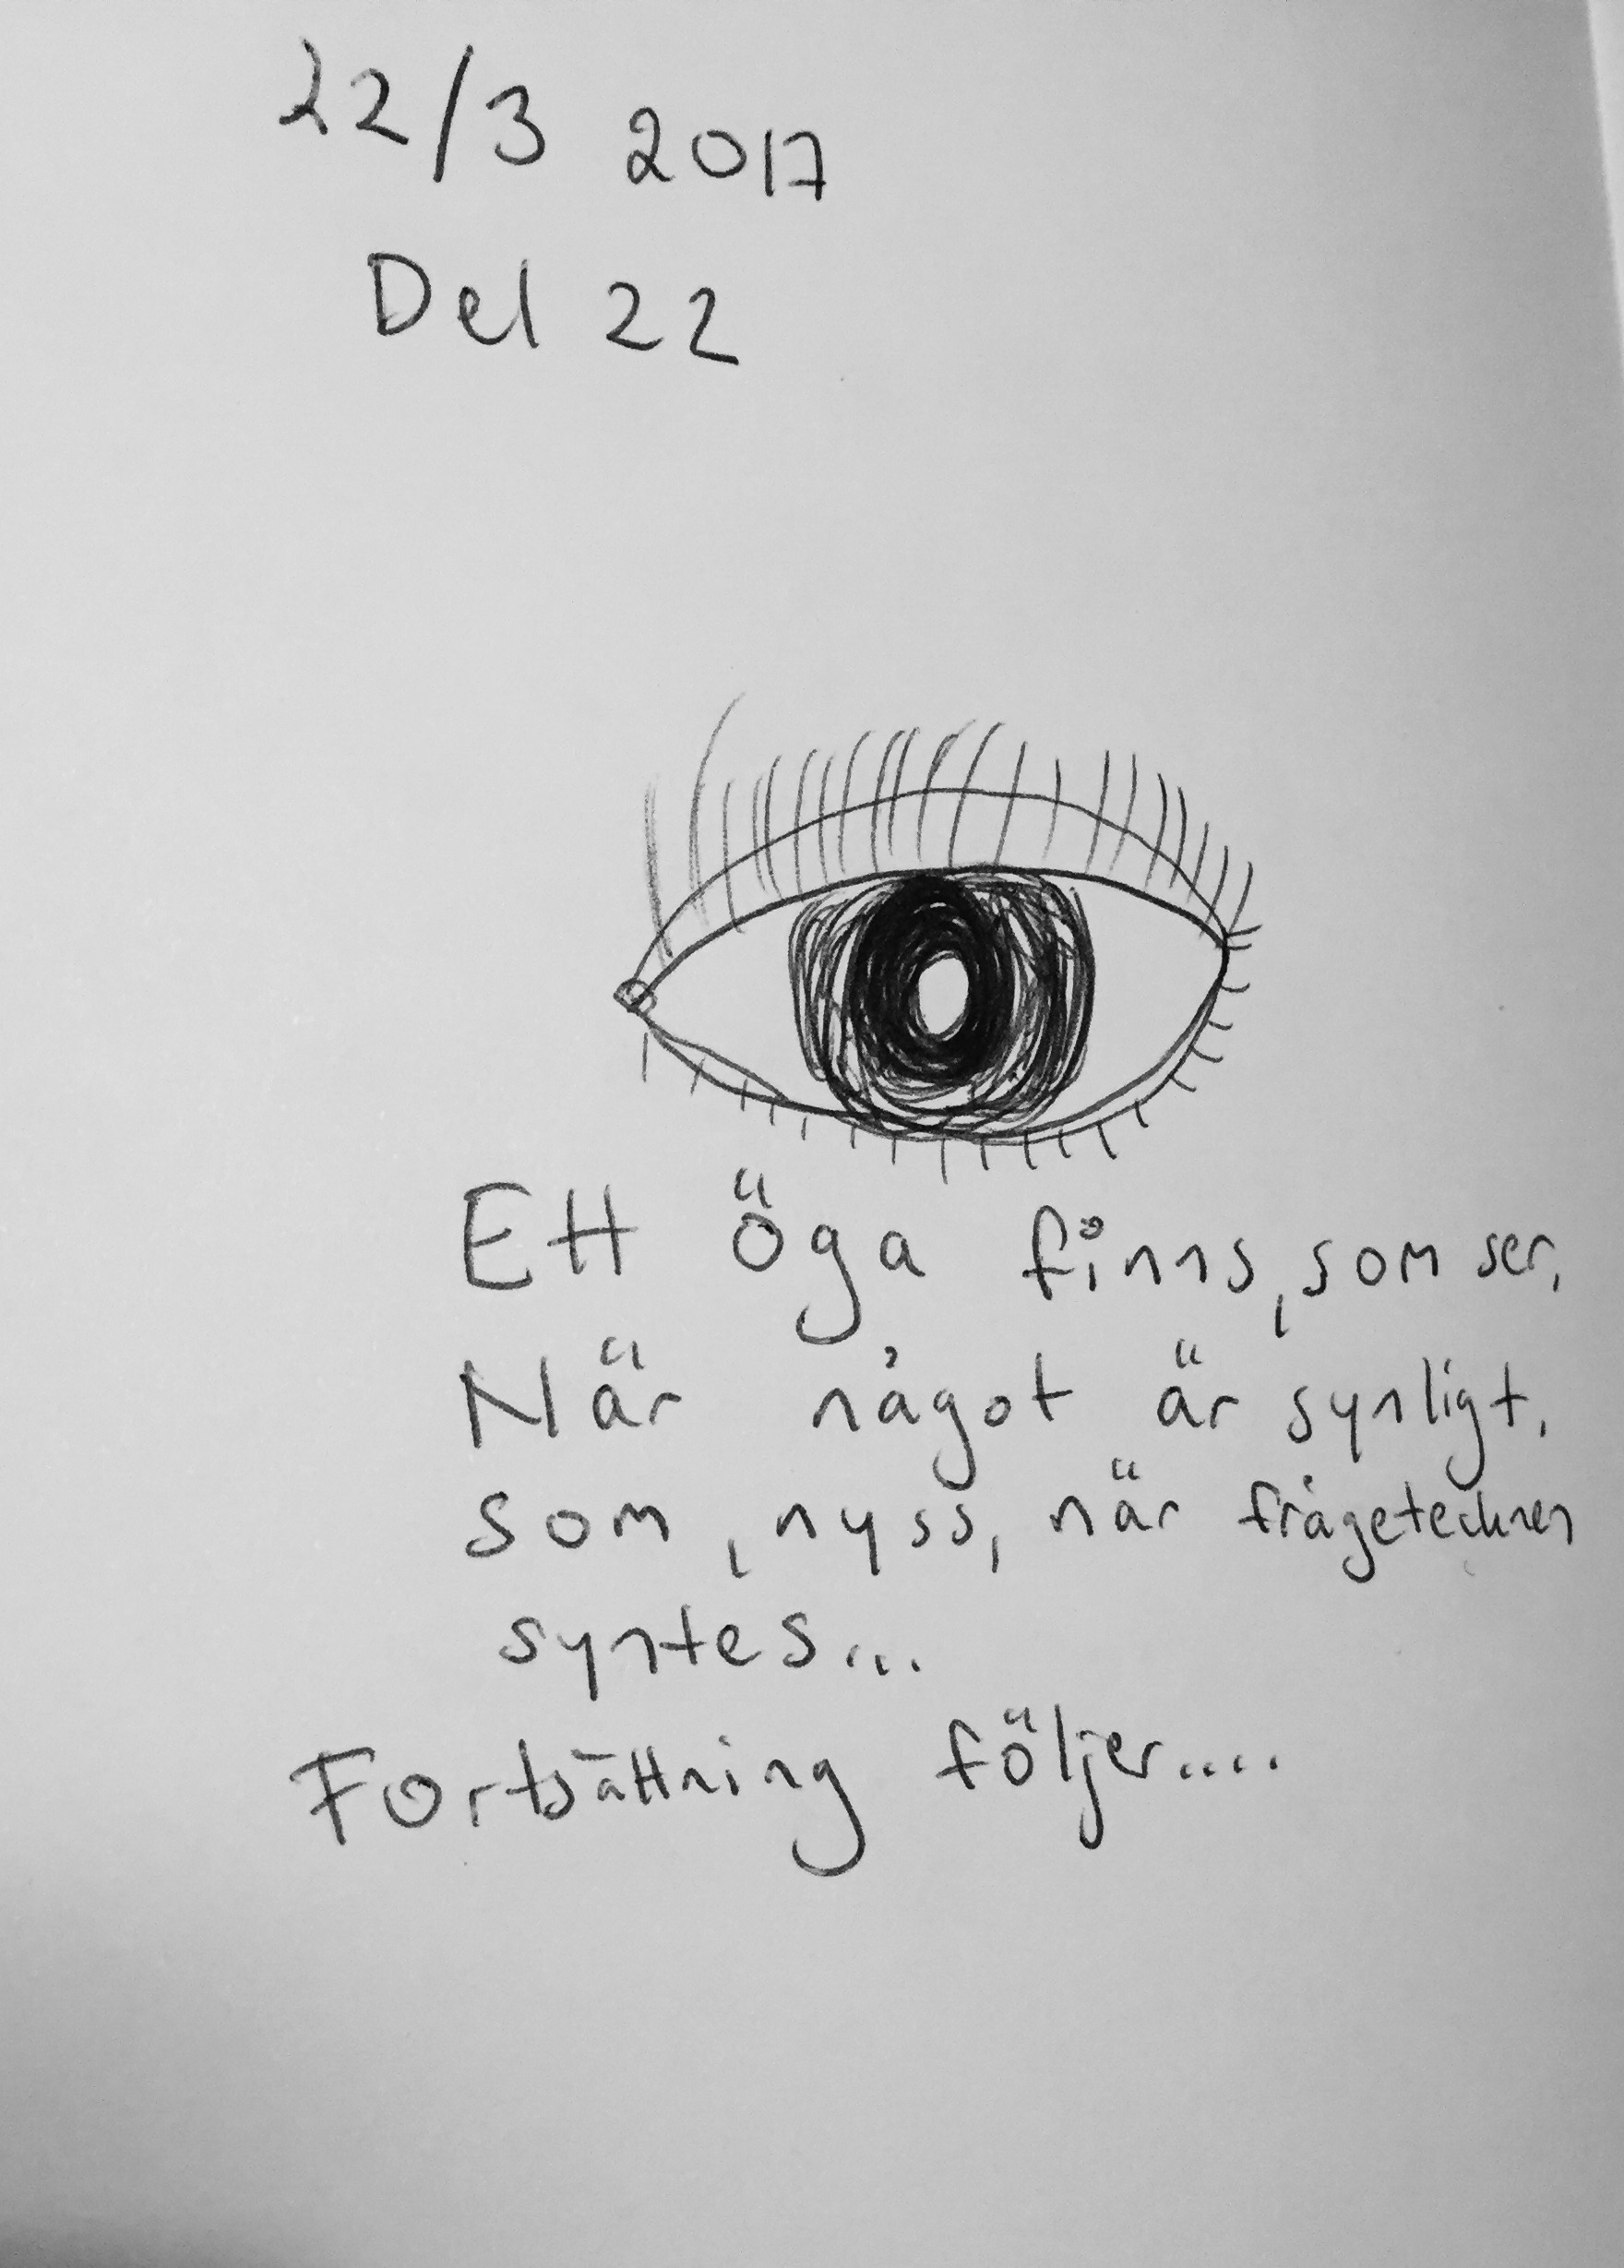 22/3 2017
Del 22
Ett öga finns, som ser.
När något är synligt.
som, nyss, när frågetecknen
syntes...
Fortsättning följer....